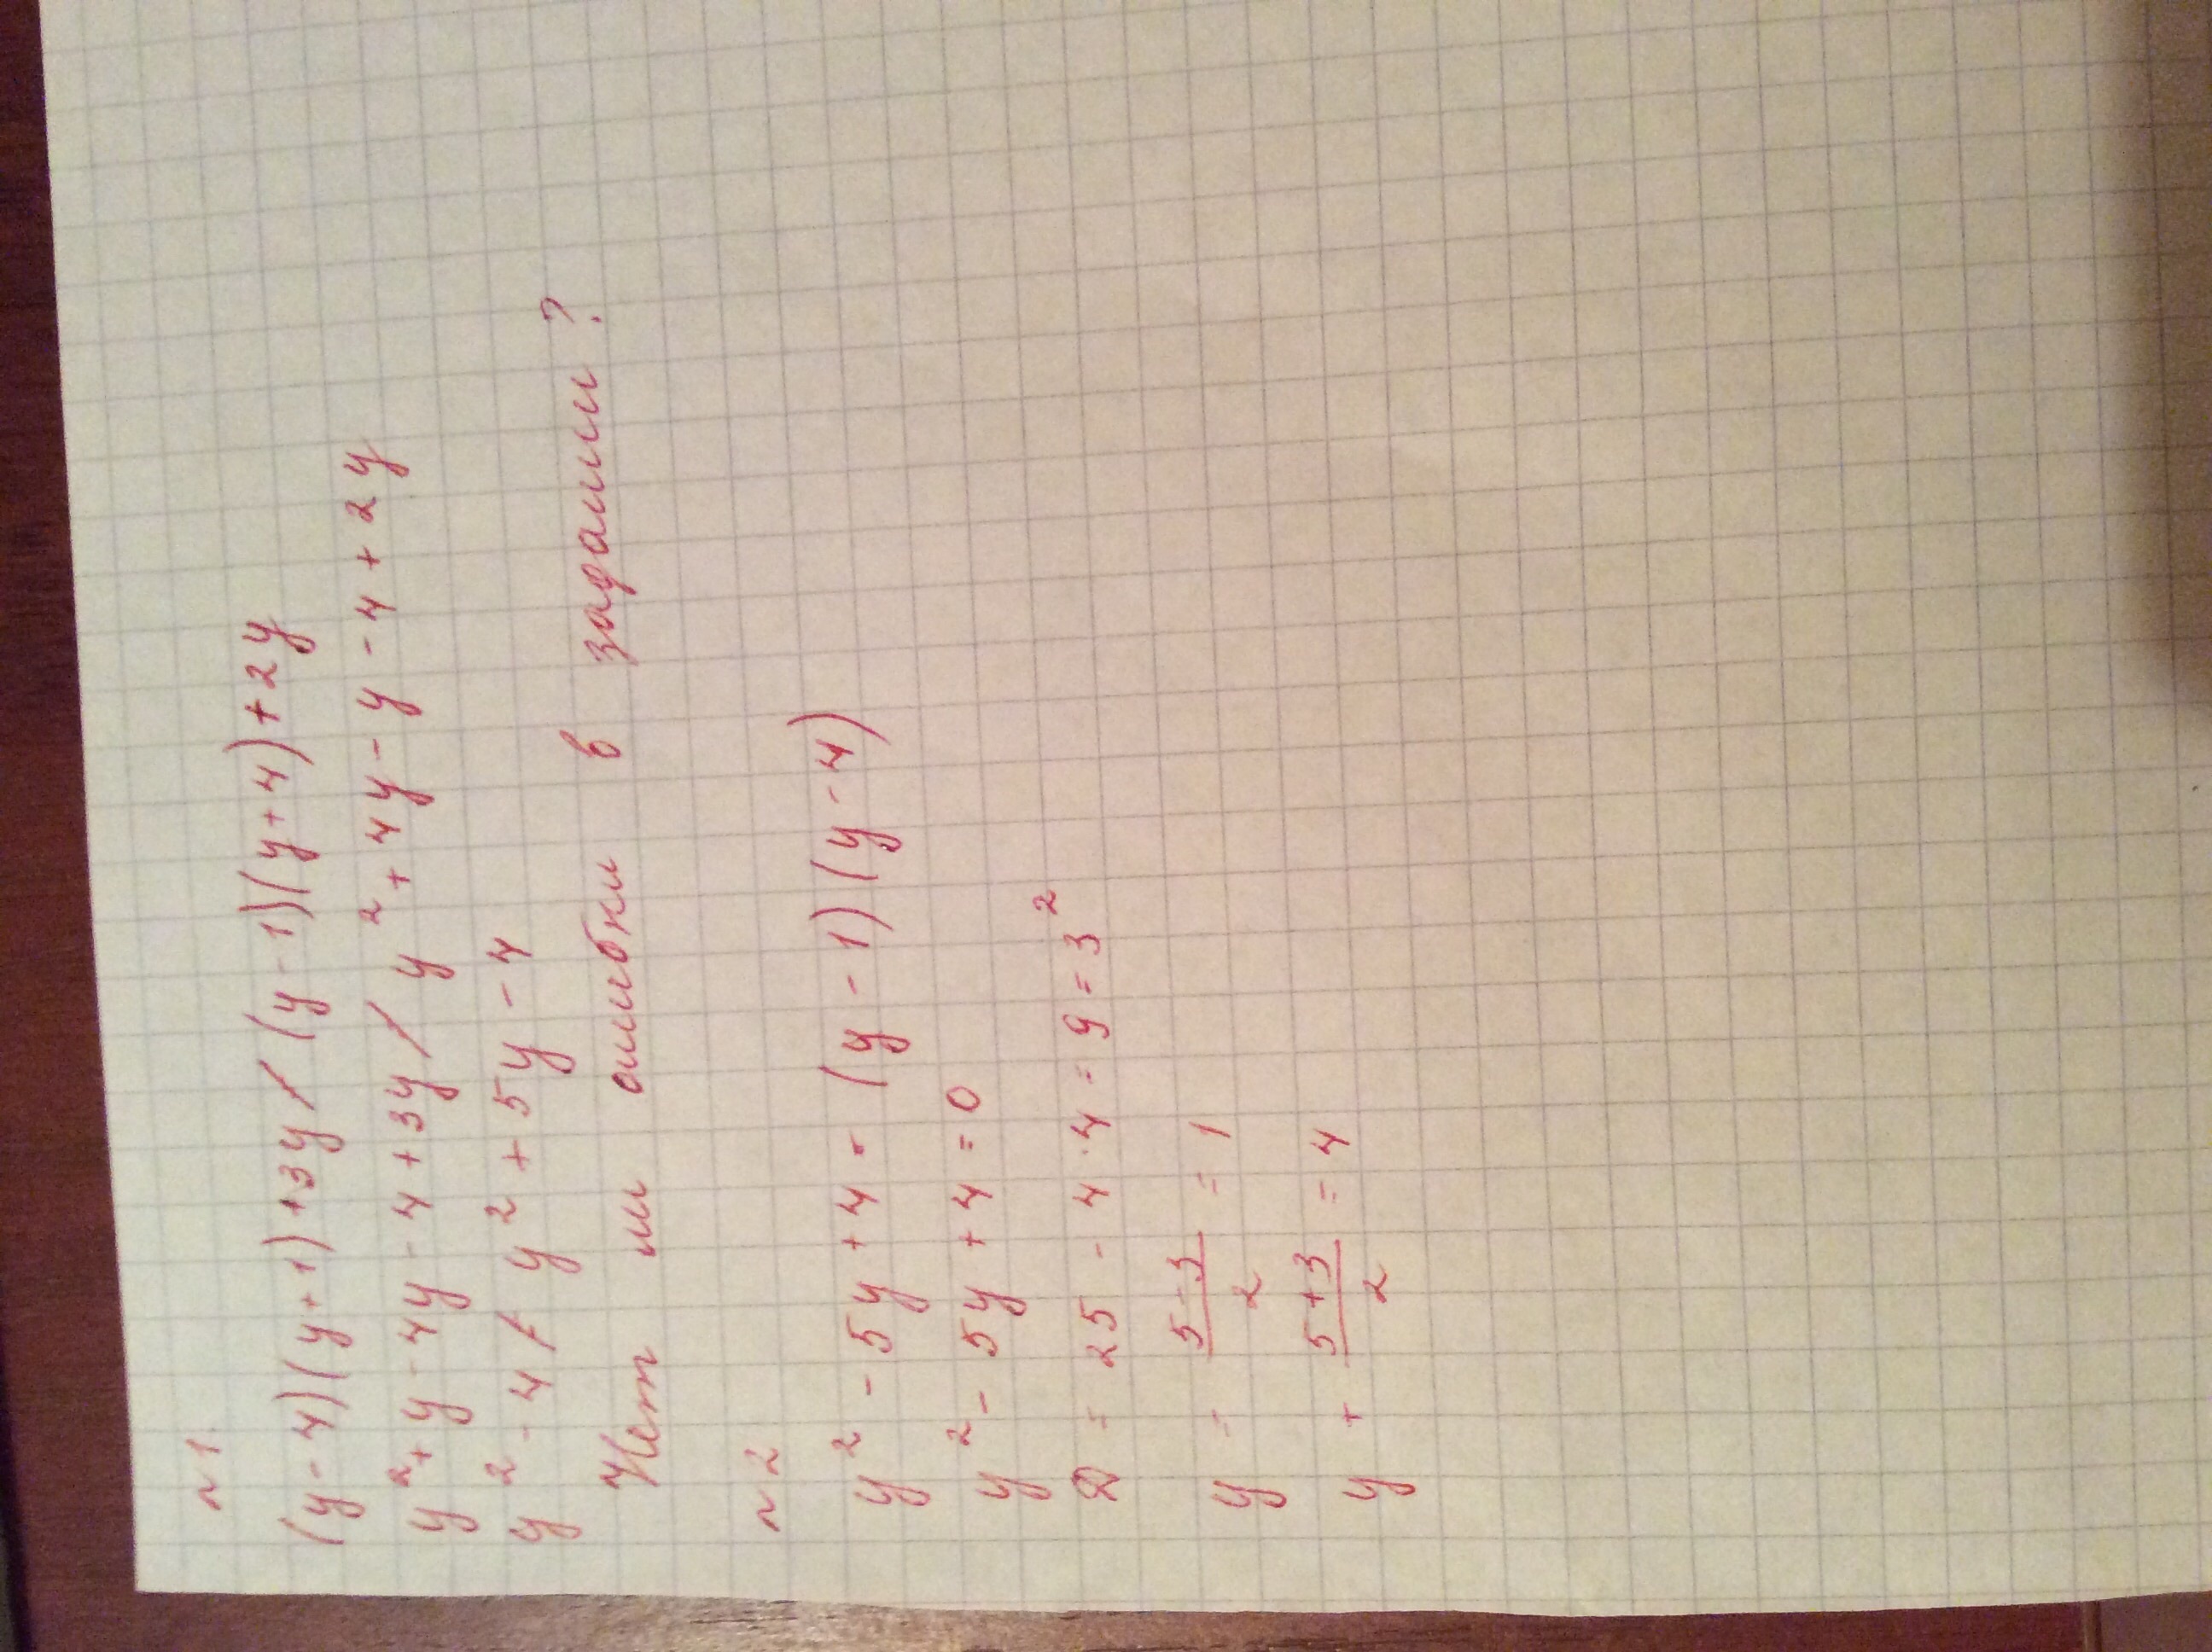 №1.
(y-4)(y+1)+3y / (y-1)(y+4)+2y
y²+y-4y-4+3y / y²+4y-y-4+2y
y²-4 / y²+5y-4
Нет ли ошибки в задании?
№2
y²-5y+4 = (y-1)(y-4)
y²-5y+4=0
D = 25-4·4=9=3²
y = \frac{5-3}{2} = 1
y + \frac{5+3}{2} = 4